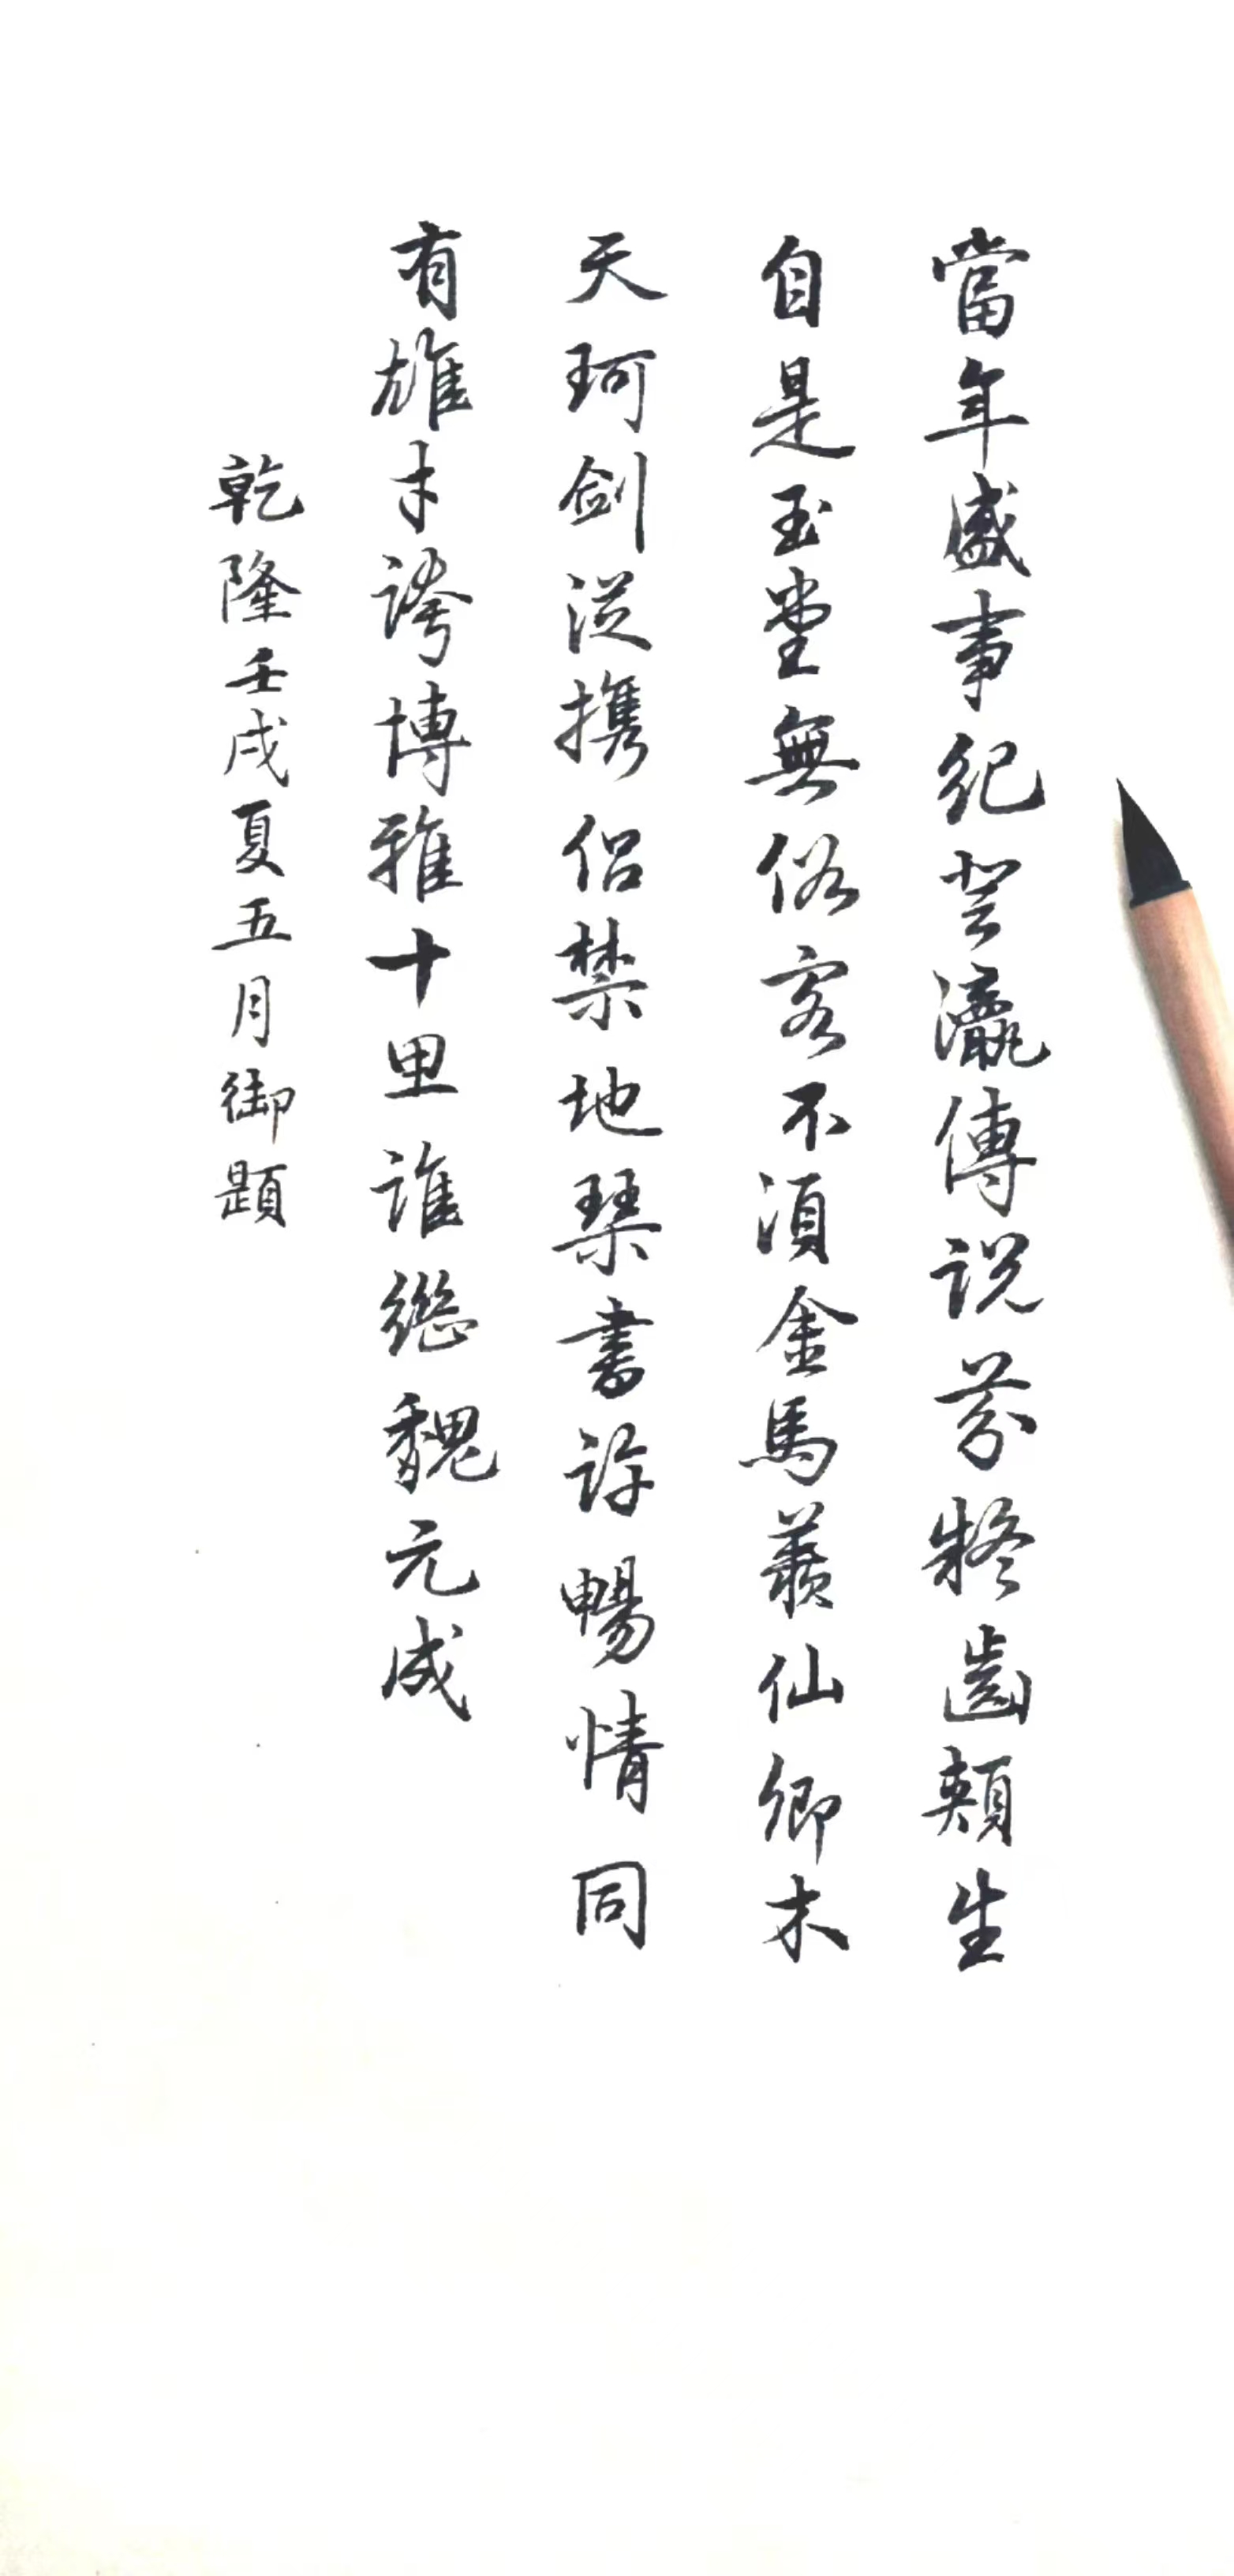 當年盛事紀登瀛傳說芬特齒頰生
自是玉堂無俗客不須金馬羨仙卿木
天珂劍從攜侶禁地琴書許暢情同
有雄才誇博雅十里誰繼魏元成
乾隆壬戌夏五月御題